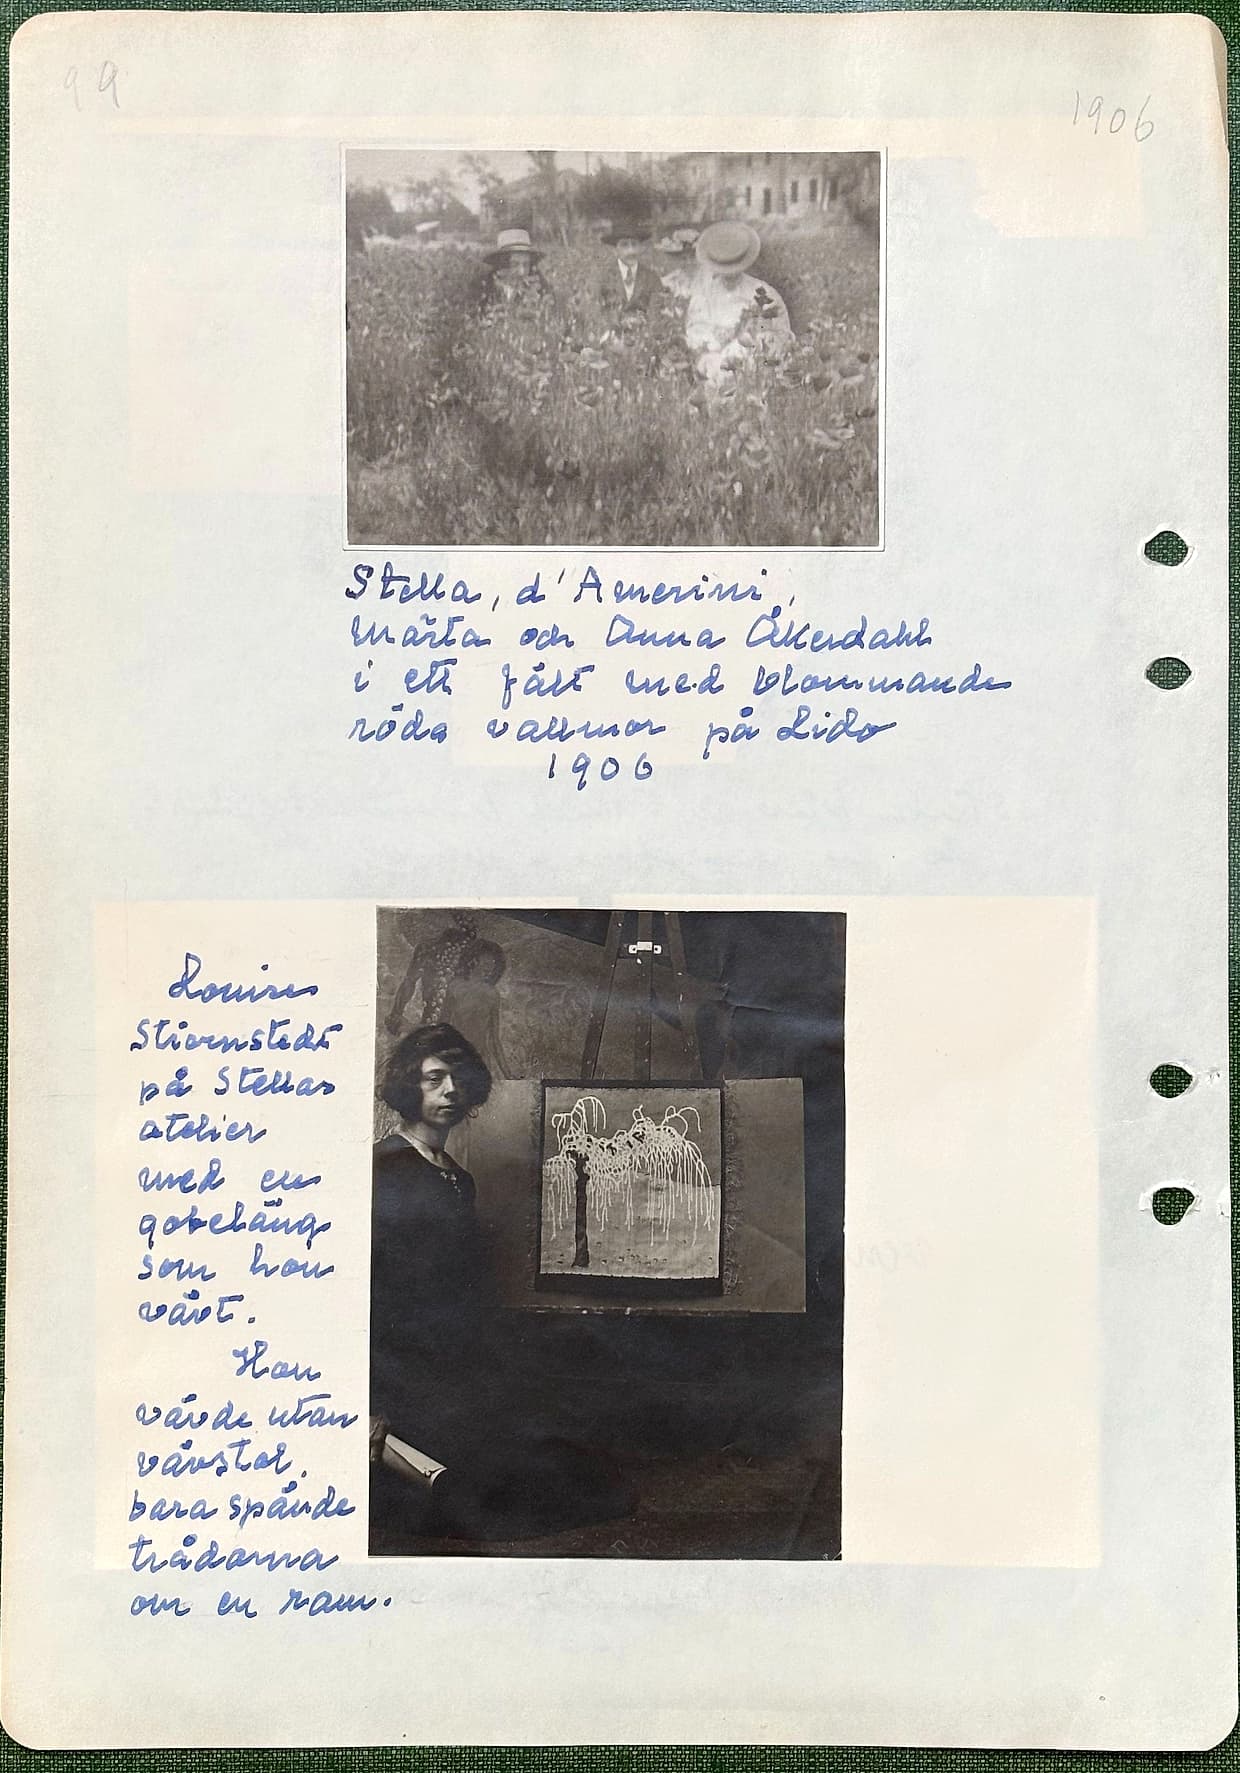 99
1906
Stella, d'Amerini,
Märta och Anna Åkerdahl
i ett fält med blommande
röda vallmor på Lido
1906
Louise
Stiernstedt
på Stellas
atelier
med en
gobeläng
som hon
vävt.
Hon
vävde utan
vävstol,
bara spände
trådarna
om en ram.